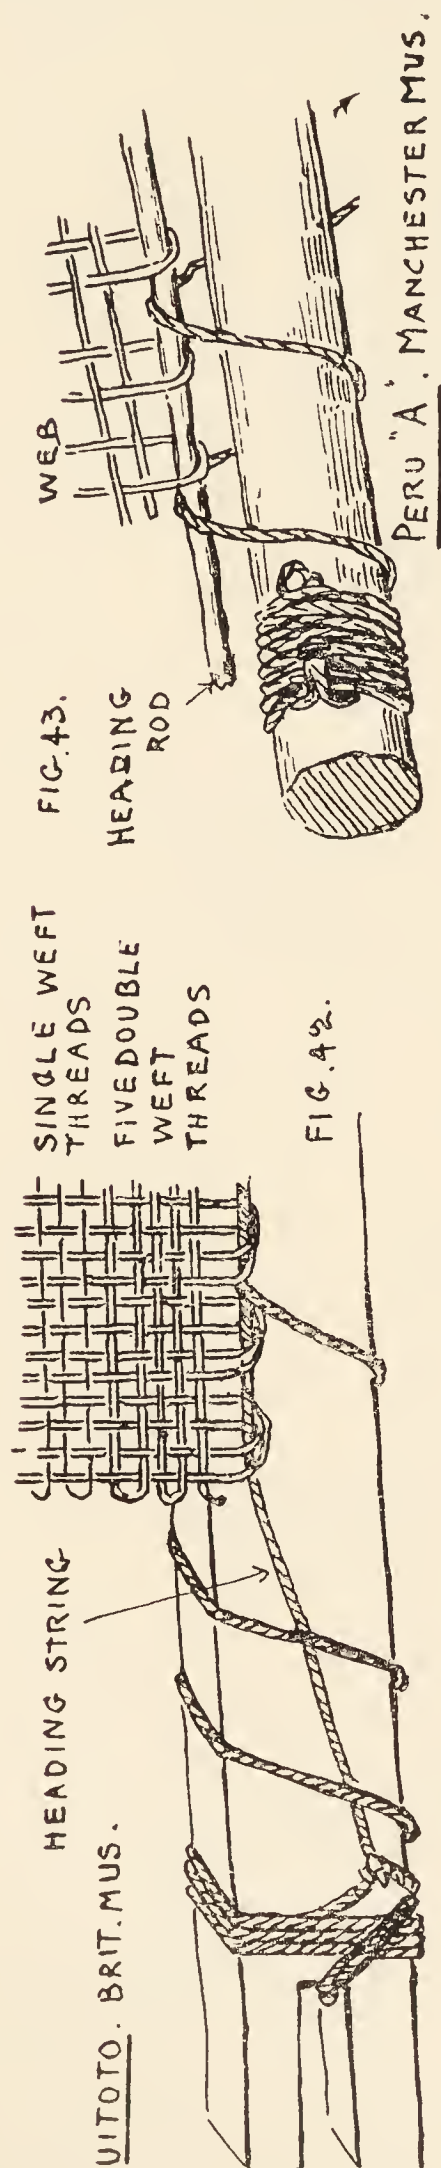 UITOTO. BRIT. MUS.
HEADING STRING
SINGLE WEFT
THREADS
FIVE DOUBLE
WEFT
THREADS
FIG. 42.
FIG. 43.
HEADING
ROD
WEB
PERU "A". MANCHESTER MUS.